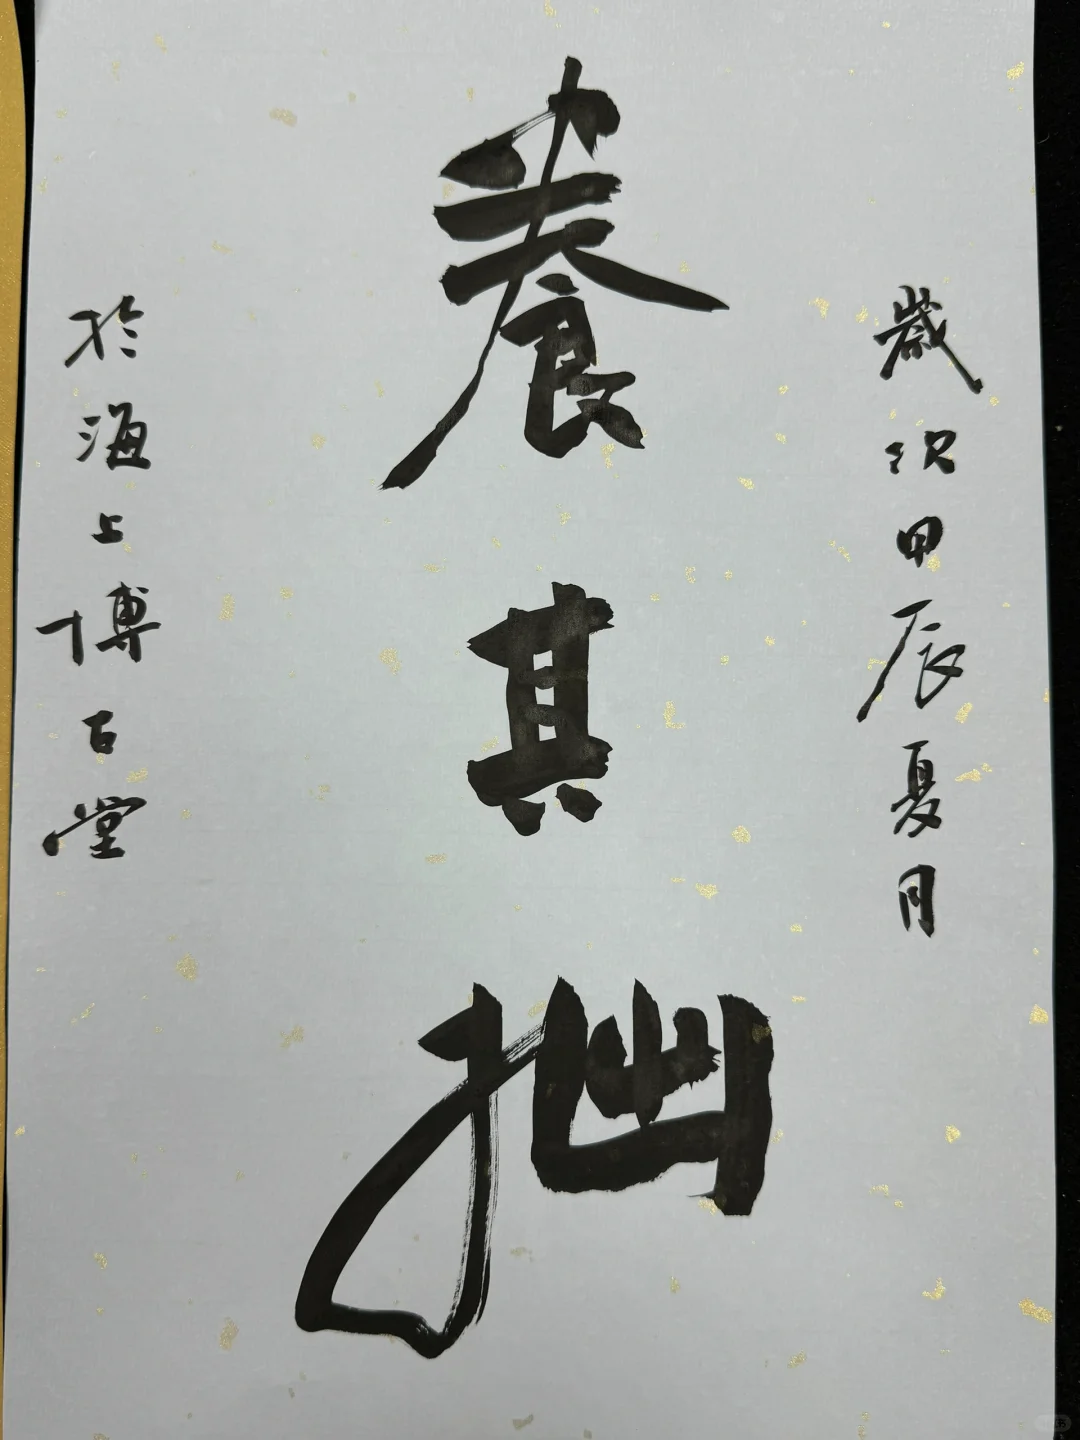 歲次甲辰夏月
養其拙
於海上博古堂